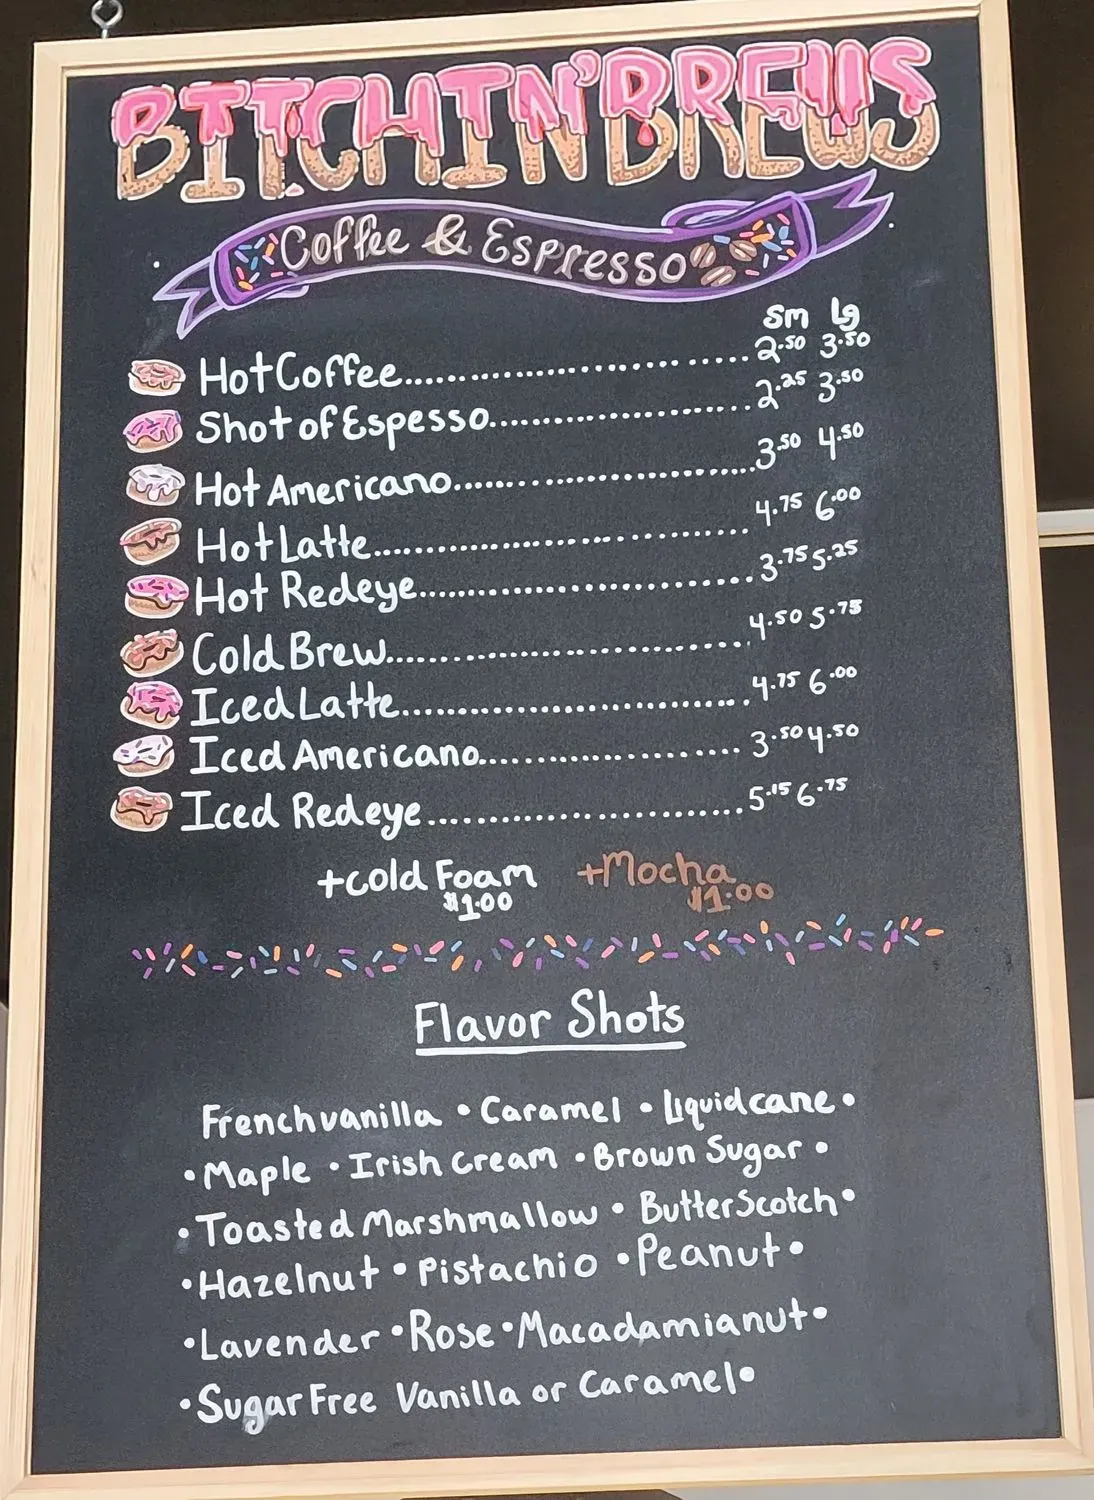 BITCHIN' BREWS
Coffee & Espresso
Sm Lg
Hot Coffee 2.50 3.50
Shot of Espesso 2.25 3.50
Hot Americano 3.50 4.50
Hot Latte 4.75 6.00
Hot Redeye 3.75 5.25
Cold Brew 4.50 5.75
Iced Latte 4.75 6.00
Iced Americano 3.50 4.50
Iced Redeye 5.15 6.75
+cold Foam +Mocha
$1.00 $1.00
Flavor Shots
French vanilla • Caramel • Liquid cane •
• Maple • Irish cream • Brown Sugar •
• Toasted Marshmallow • ButterScotch •
• Hazelnut • Pistachio • Peanut •
• Lavender • Rose • Macadamianut •
• Sugar Free Vanilla or Caramel •